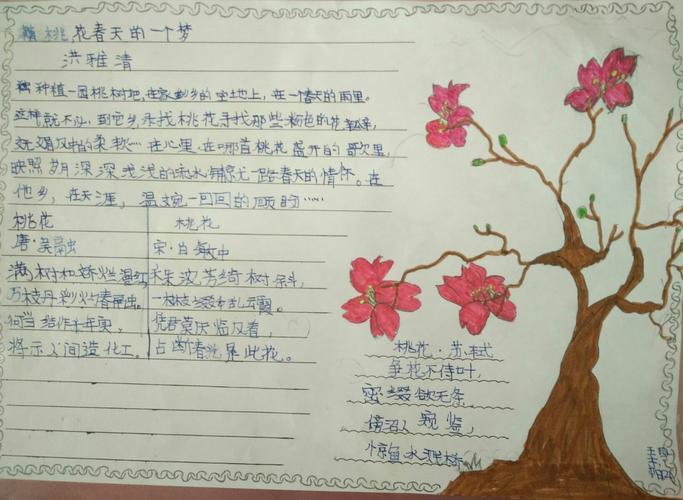 桃花春天的一个梦
洪雅清
种植一园桃树吧,在家乡的空地上,在一个春天的雨里。
这样就不必,到它乡寻找桃花寻找那些粉色的花
风中的柔软……在心里,在哪首桃花盛开的歌里,
映照 深深浅浅的流水铺就一路春天的情怀。在
他乡,在天涯,温婉一回回的顾盼……
桃花
唐·吴融
满树和娇烂漫红
万枝丹彩灼春融。
何当结作千年实,
将示人间造化工。
桃花
宋·白敏中
朱波芳绮树
一枝枝缀乱云霞。
凭君莫厌临风看,
占断春光是此花。
桃花·苏轼
争花不待叶,
密缀欲无条
傍沼人窥鉴,
惊鱼水溅桥